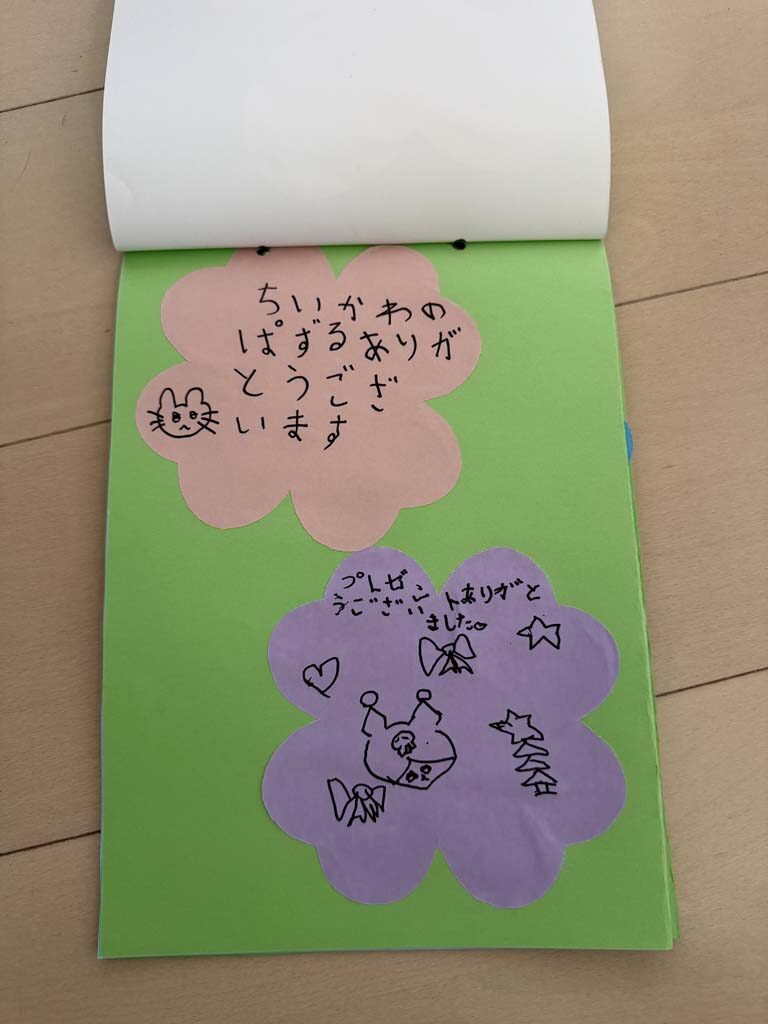 ちいかわの
ぱずるありが
とうござ
います
プレゼントありがと
うございました